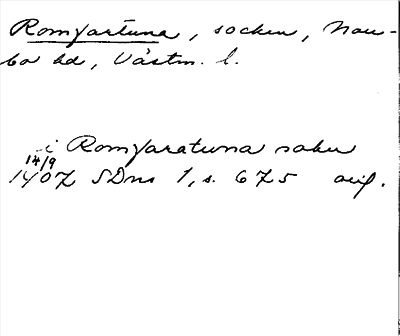 Romfartuna, socken, Nor-
bo hd, Västm. l.
i Romfaratuna sokn
14/9
1407 SDns 1, s. 675 orig.